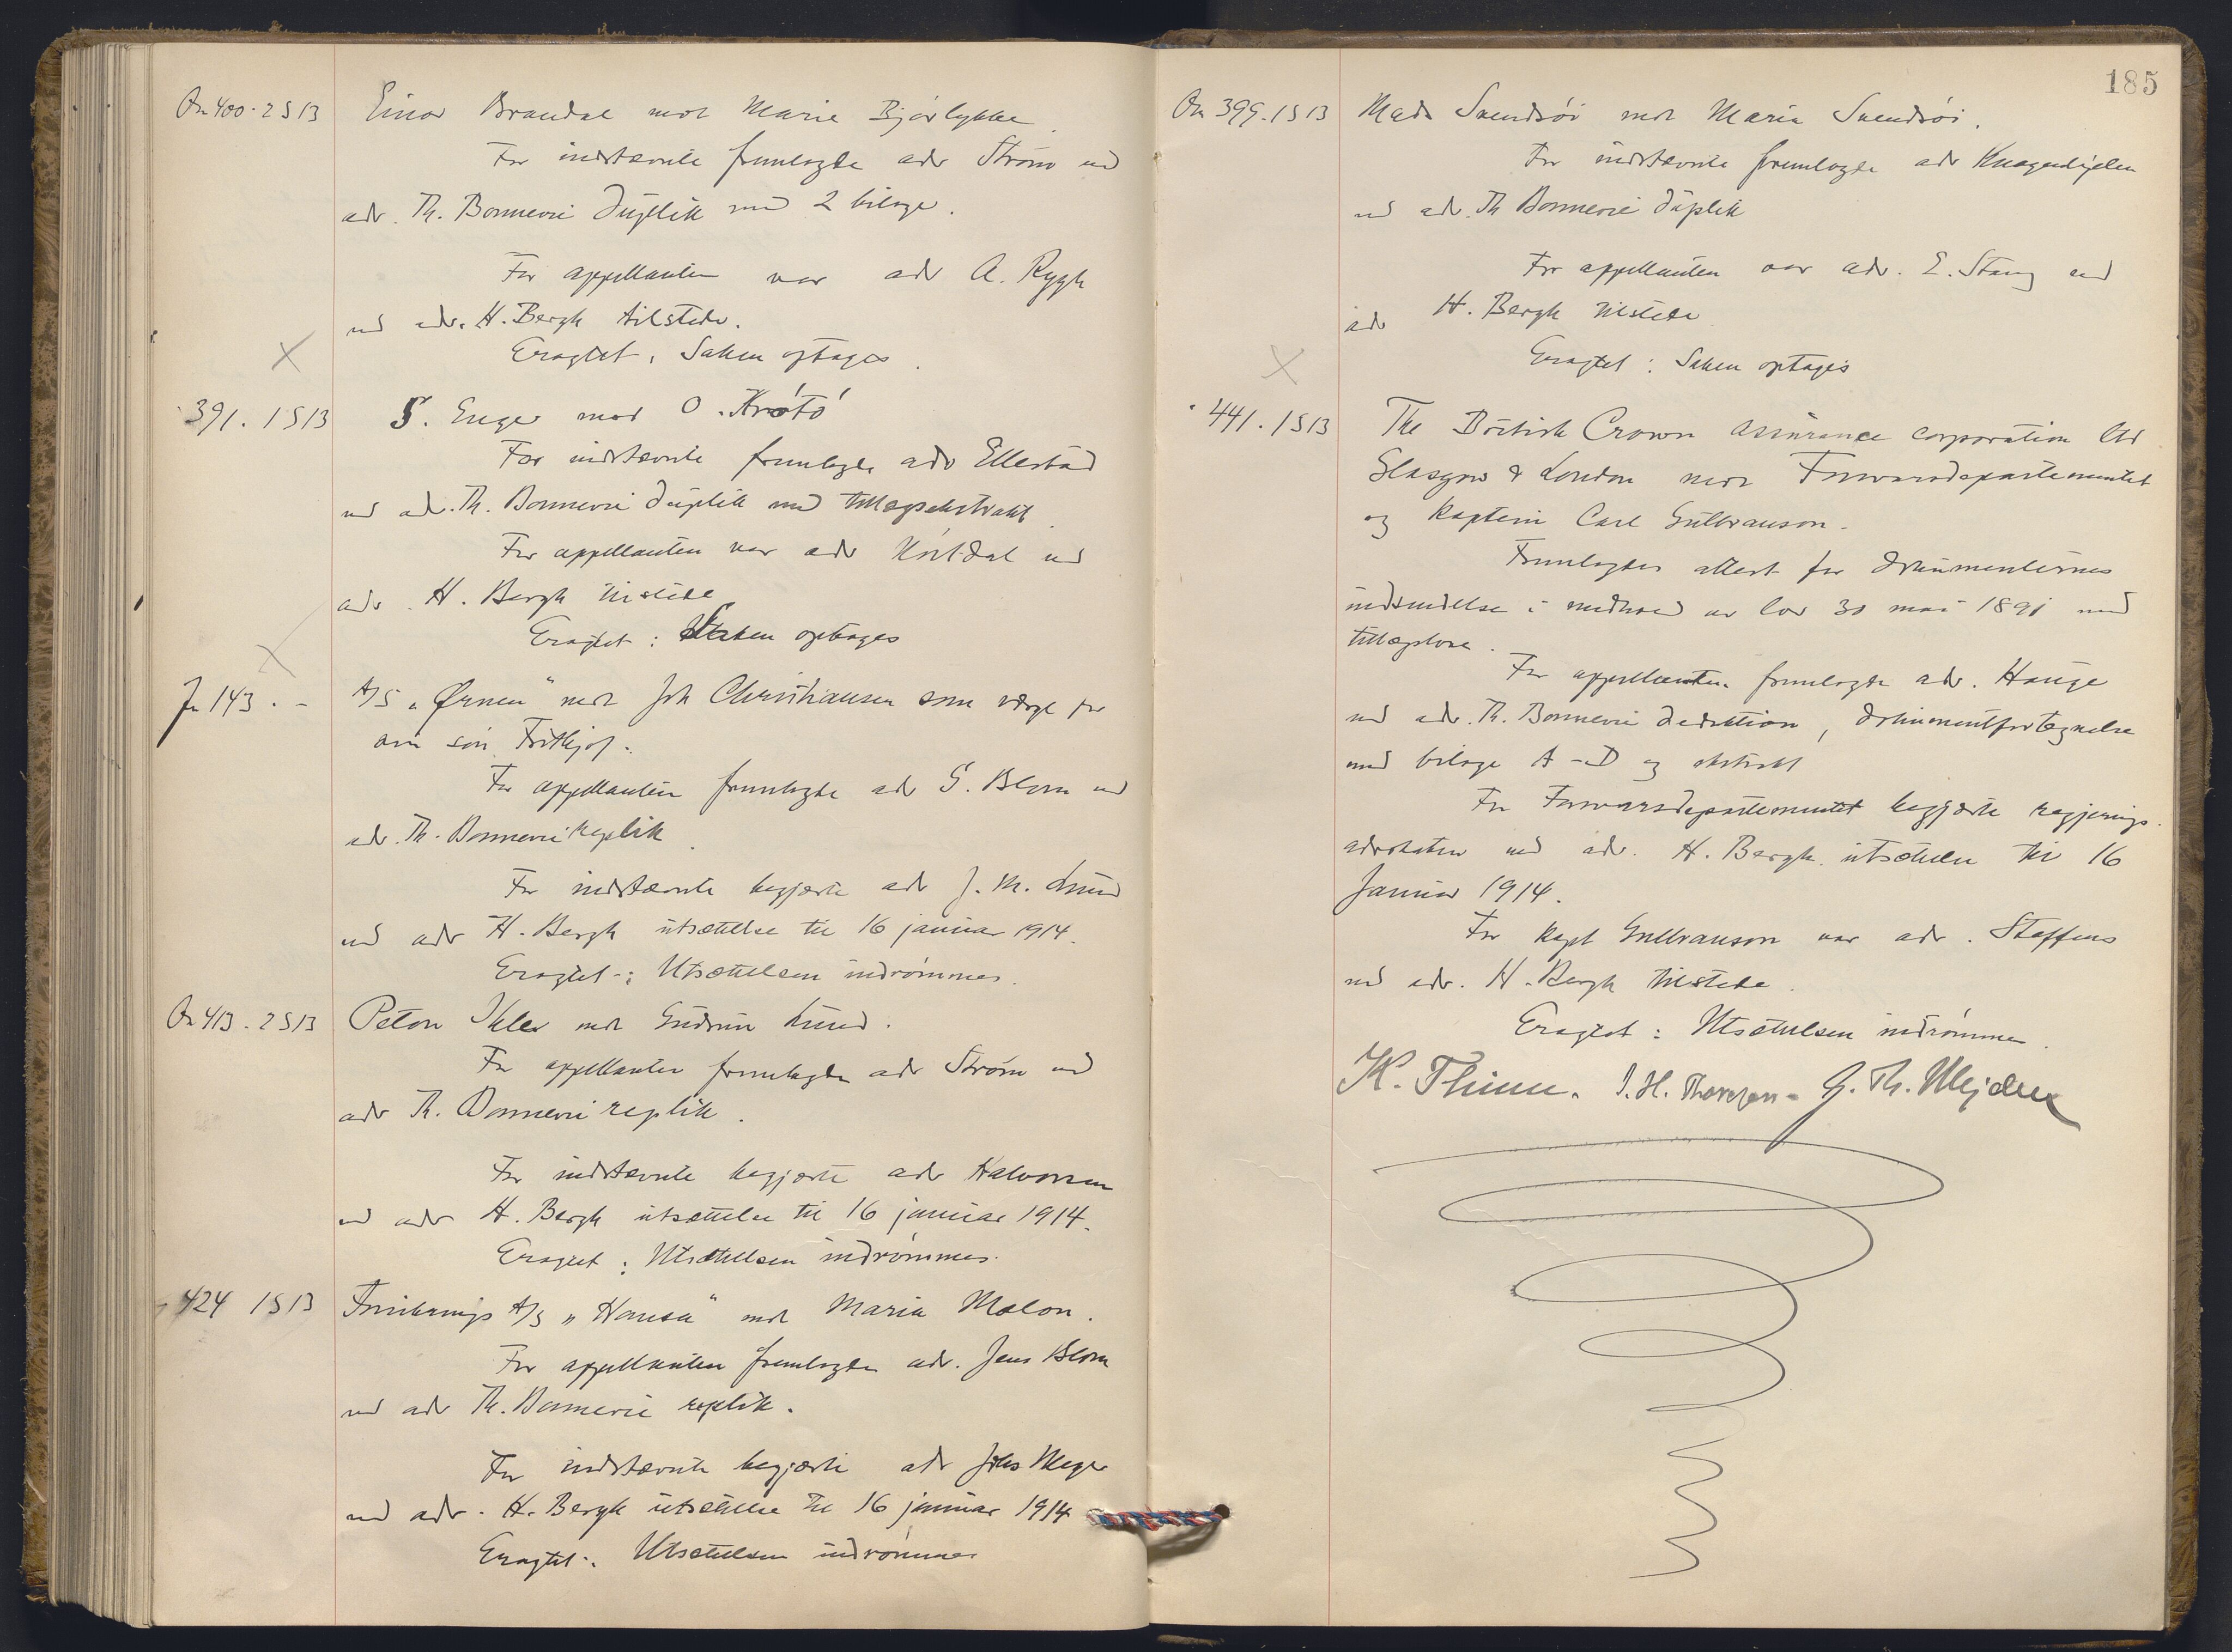 On 400 - 2 S 13 Einar Brandal mot Marie Bjørlykke
For indstevnte fremlagde adv Strøm ved
adv. Th. Bonnevie duplik med 2 bilage.
For appellanten var adv A. Rygh
ved adv. H. Bergh tilstede.
Eragtet: Saken optages.
391. 1 S 13 S. Enger mot O. Krøtø
For indstevnte fremlagde adv Ellestad
ved adv. Th. Bonnevie duplik med tillægsekstrakt.
For appellanten var adv Kortdal ved
adv. H. Bergh tilstede
Eragtet: Saken optages
Jn 143. - A/S "Ørnen" mot Joh Christiansen som værge for
sin søn Fritkjof.
For appellanten fremlagde adv G. Blom ved
adv. Th. Bonnevie replik.
For indstævnte begjærte adv J. M. Lund
ved adv H. Bergh utsættelse til 16 januar 1914.
Eragtet: Utsættelsen indrømmes.
On 413 - 2 S 13 Peton mot Gudrun Lund.
For appellanten fremlagde adv Strøm ved
adv Th. Bonnevie replik.
For indstævnte begjærte adv Halvorsen
ved adv H. Bergh utsættelse til 16 januar 1914.
Eragtet: Utsættelsen indrømmes.
424 1 S 13 Forsikrings A/S "Hansa" mot Maria Malon.
For appellanten fremlagde adv. Jens Blom
ved adv Th. Bonnevie replik.
For indstævnte begjærte adv Johs Meyer
ved adv. H. Bergh utsættelse til 16 januar 1914
Eragtet: Utsættelsen indrømmes
185
On 399. 1 S 13 Mads Svendsøi mot Maria Svendsøi.
For indstævnte fremlagde adv Knagenhjelm
ved adv. Th Bonnevie duplik
For appellanten var adv. E. Stang ved
adv H. Bergh tilstede
Eragtet: Saken optages
441. 1 S 13 The British Crown assurance corporation Ltd
Glasgow & London mot Forsvarsdepartementet
og Kaptein Carl Gulbranson.
Fremlagdes attest for dokumenternes
indsendelse i medhold av lov 30 mai 1891 med
tillægslove.
For appellanten fremlagde adv. Hauge
ved adv. Th. Bonnevie deduktion, dokumentfortegnelse
med bilage A-D og ekstrakt
For Forsvarsdepartementet begjærte regjerings-
advokaten ved adv. H. Bergh utsættelse til 16
Januar 1914.
For Kapt Gulbranson var adv. Steffens
ved adv. H. Bergh tilstede.
Eragtet: Utsættelsen indrømmes.
K. Thinn. J. H. Thoresen - G. Th. Mejdell